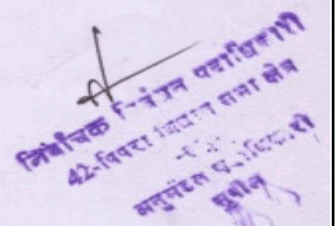 निर्वाचक निबंधन पदाधिकारी
42-पिपरा विधान सभा क्षेत्र
-सह-
अनुमंडल पदाधिकारी
सुपौल